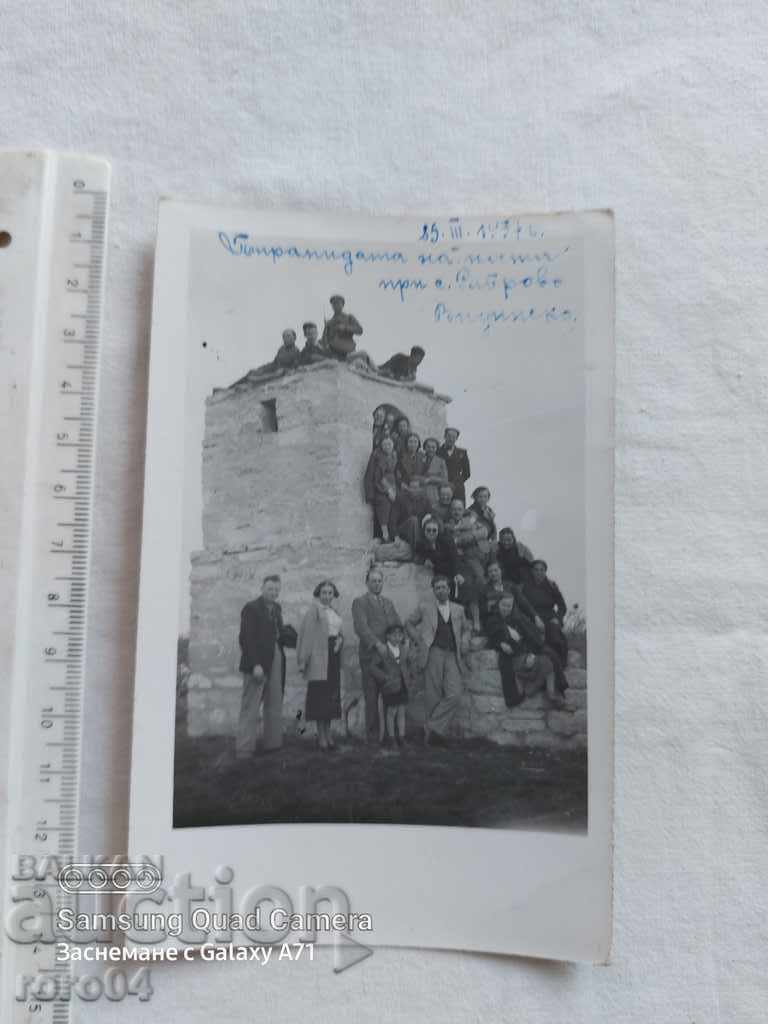 25. III. 1937 г.
Пирамидата на поста
при с.
0 1 2 3 4 5 6 7 8 9 10 11 12 13 5
БАЛКАН
auction
Samsung Quad Camera
Заснемане с Galaxy A71
roro04